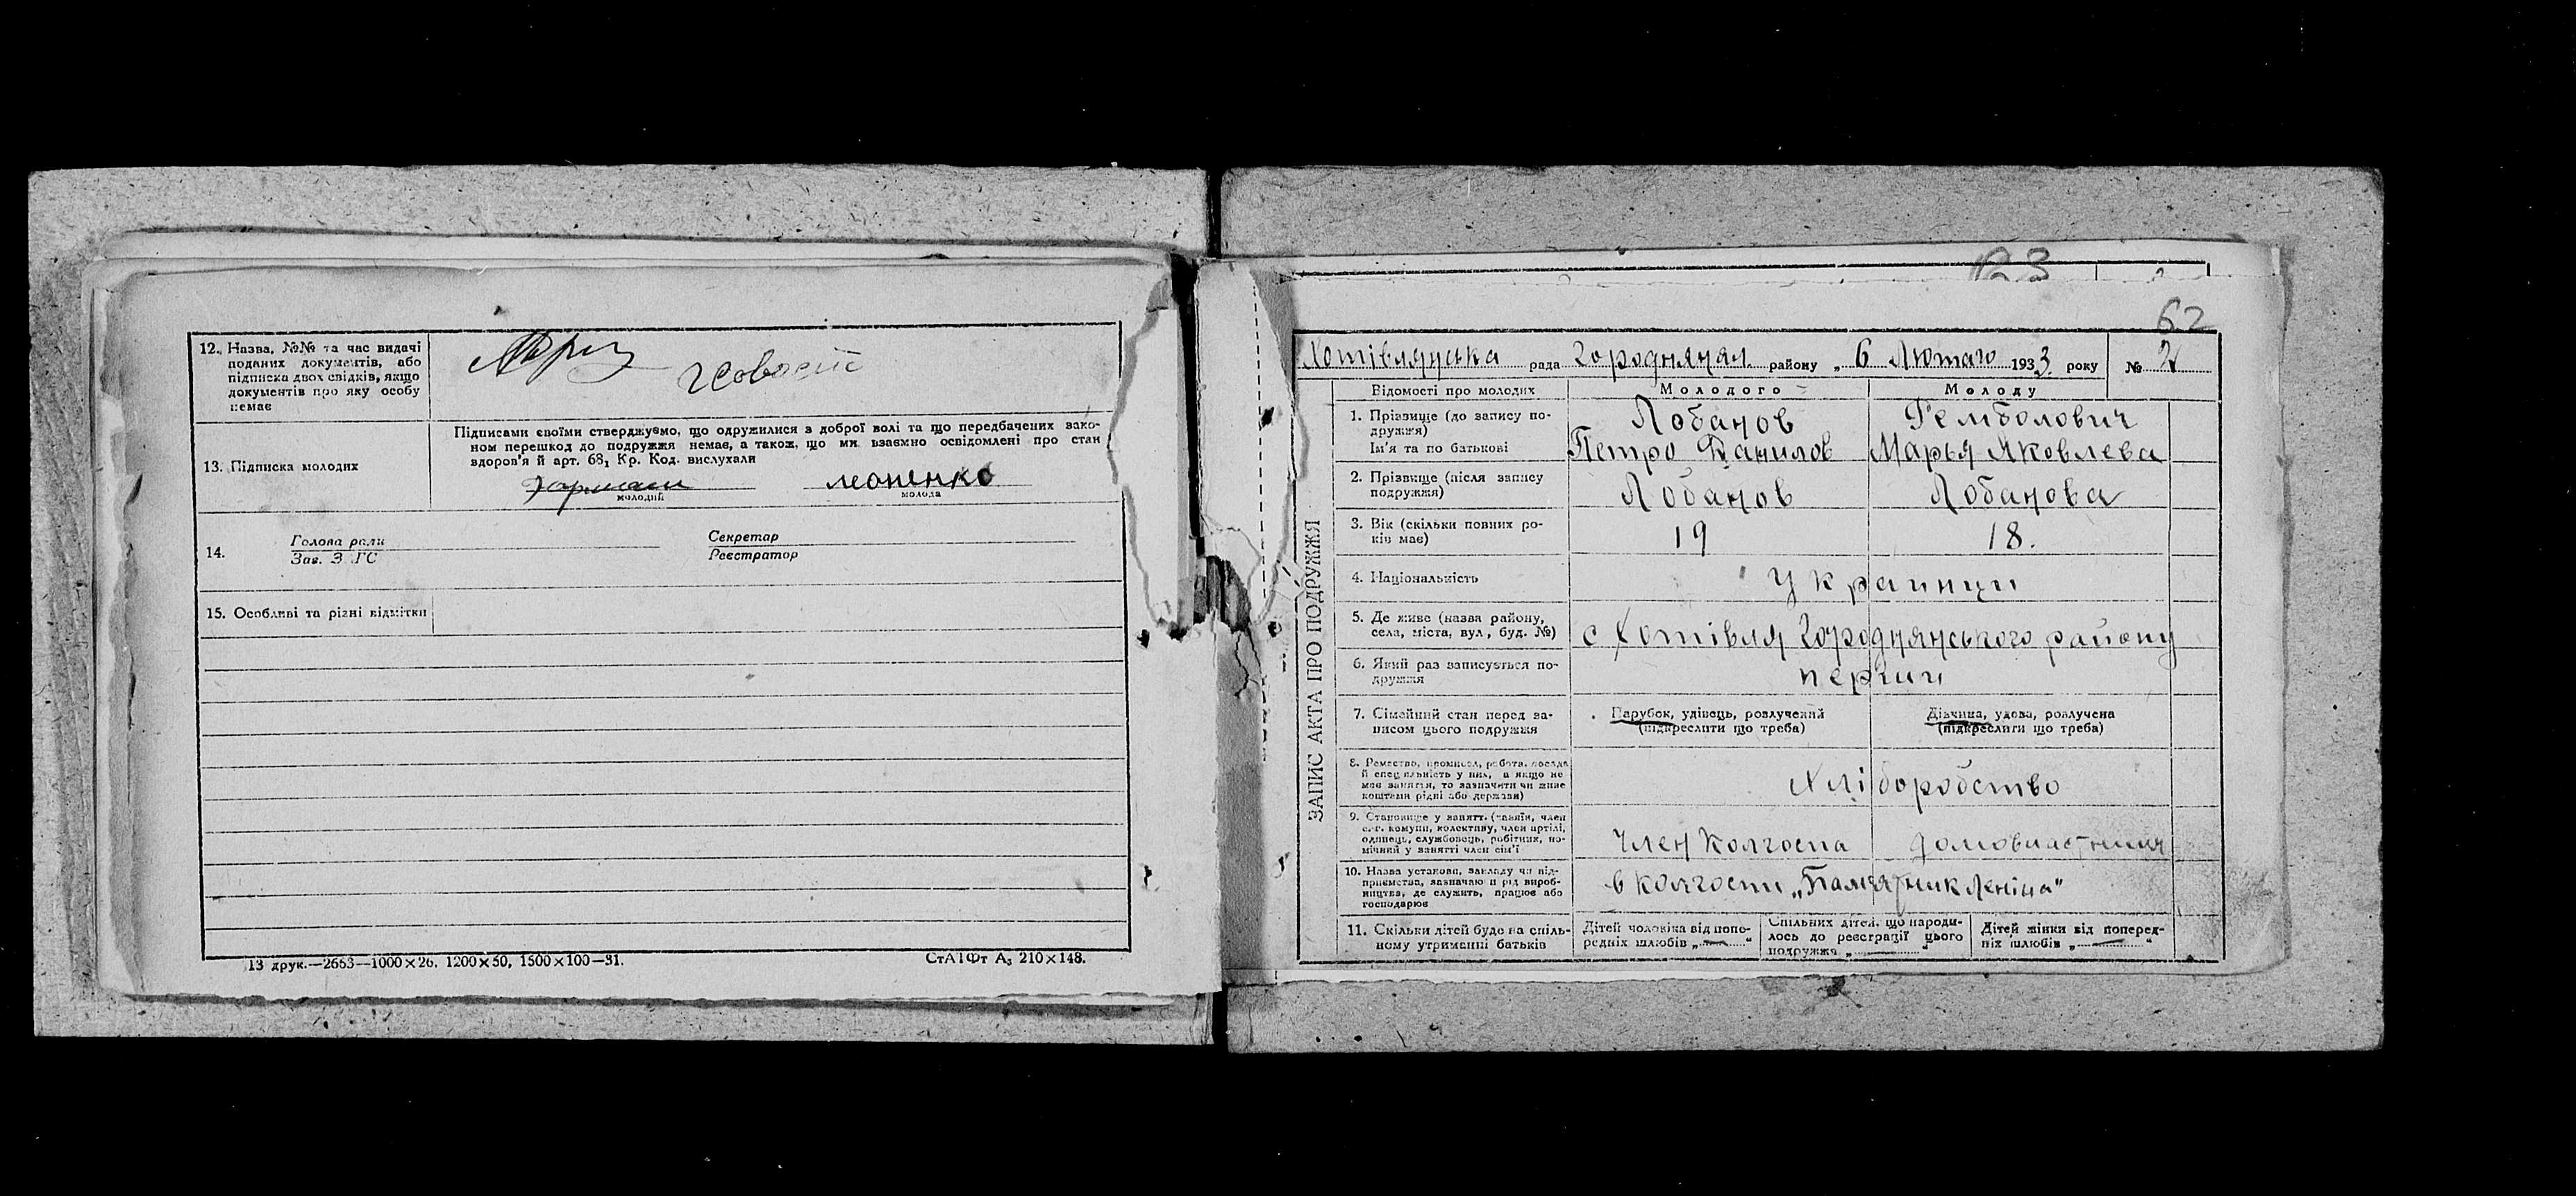 12. Назва, №№ та час видачі
поданих документів, або
підписка двох свідків, якщо
документів про яку особу
немає
13. Підписка молодих
Підписами своїми стверджуємо, що одружилися з доброї волі та що передбачених зако-
ном перешкод до подружжя немає, а також, що ми взаємно освідомлені про стан
здоров'я й арт. 68₁ Кр. Код. вислухали
молодий
молода
14.
Голова ради
Зав. ЗАГС
Секретар
Реєстратор
15. Особливі та різні відмітки
13 друк.—2663—1000×26, 1200×50, 1500×100—31.
СтАТФт А₃ 210×148.
123
62
Хотівлянська рада Городняняя району „6 Лютаго 1933 року
№ 2
ЗАПИС АКТА ПРО ПОДРУЖЖЯ
Відомості про молодих
Молодого
Молоду
1. Прізвище (до запису по-
дружжя)
Ім'я та по батькові
Лобанов
Петро Данилов
Гемболович
Марья Яковлева
2. Прізвище (після запису
подружжя)
Лобанов
Лобанова
3. Вік (скільки повних ро-
ків має)
19
18.
4. Національність
Украинци
5. Де живе (назва району,
села, міста, вул., буд. №)
с Хотівля Городнянського району
6. Який раз записується по-
дружжя
перши
7. Сімейний стан перед за-
писом цього подружжя
Парубок, удівець, розлучений
(підкреслити що треба)
Дівчина, удова, розлучена
(підкреслити що треба)
8. Ремество, промисел, робота, посада
й спеціальність у них, а якщо не
має заняття, то зазначити чи живе
коштами рідні або держави)
Хліборобство
9. Становище у занятті (хазяїн, член
с.-г. комуни, колективу, член артілі,
одинець, службовець, робітник, по-
мічний у занятті член сім'ї
Член Колгоспа
10. Назва установи, закладу чи під-
приємства, зазначаючи рід вироб-
ництва, де служить, працює або
господарює
в колгоспи „Памятник Леніна"
11. Скільки дітей буде на спіль-
ному утриманні батьків
Дітей чоловіка від попе-
редніх шлюбів „—"
Спільних дітей, що народи-
лось до реєстрації цього
подружжя „—"
Дітей жінки від поперед-
ніх шлюбів „—"